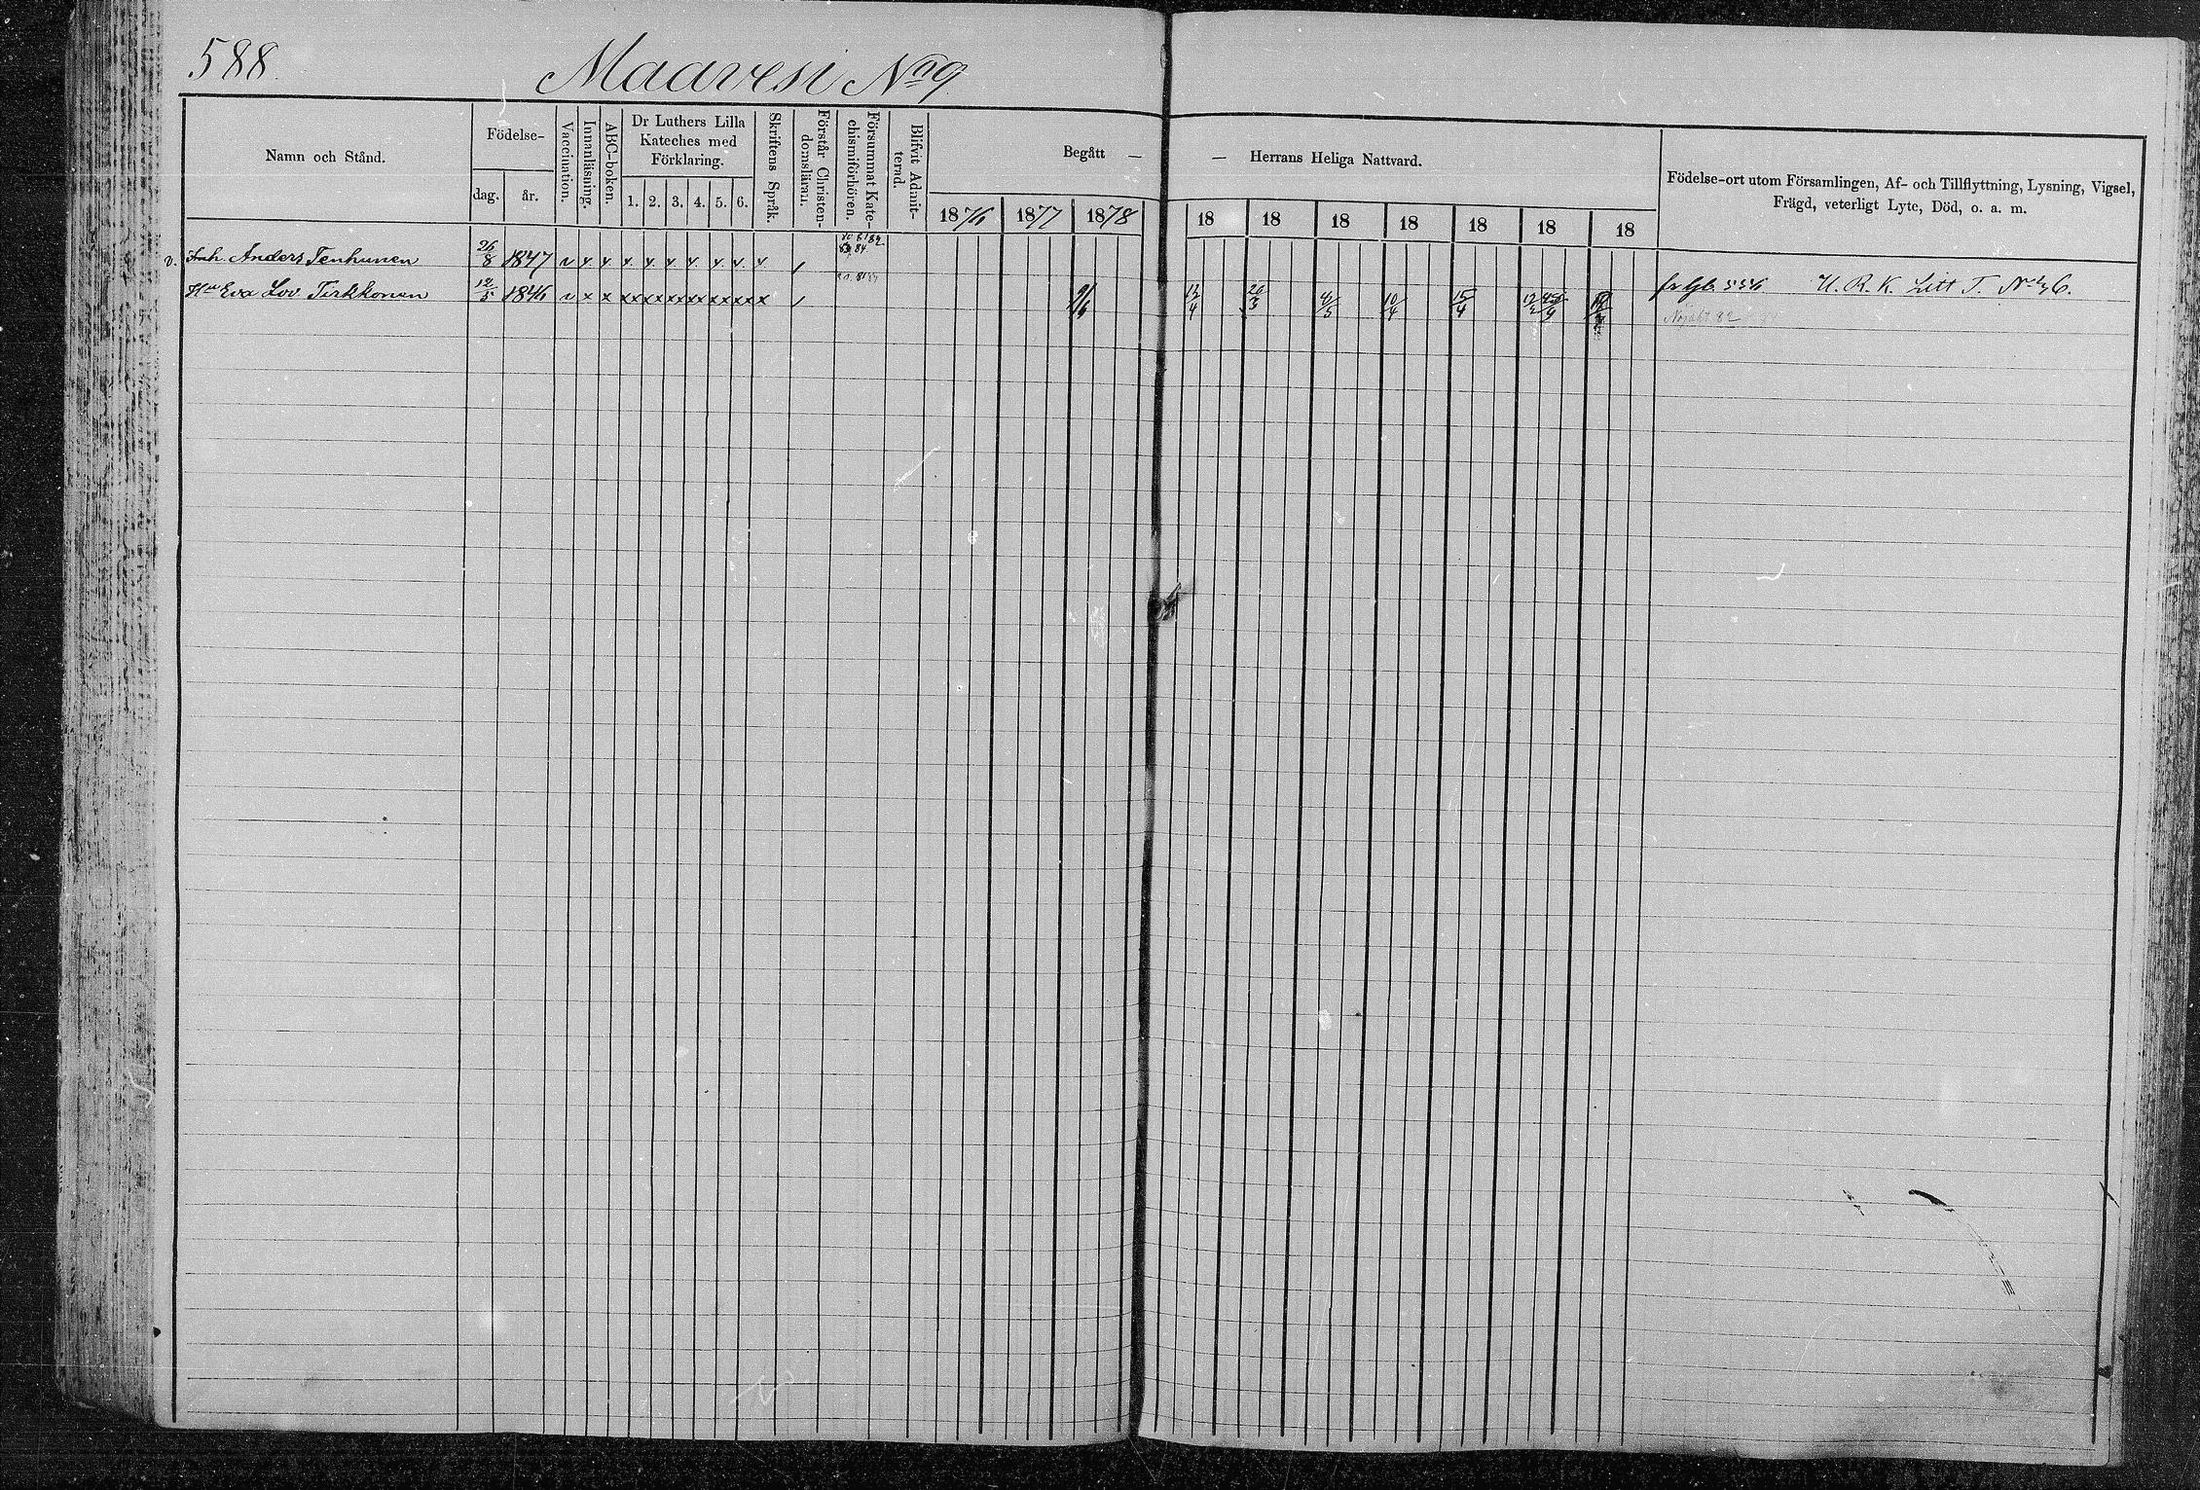 588.
Maavesi No 9
Namn och Stånd.
Födelse-
dag.
år.
Vaccination.
Innanläsning.
ABC-boken.
Dr Luthers Lilla
Kateches med
Förklaring.
1. 2. 3. 4. 5. 6.
Skriftens Språk.
Förstår Christen-
domsläran.
Försummat Kate-
chismiförhören.
Blifvit Admit-
terad.
Begått —
— Herrans Heliga Nattvard.
1876 1877 1878 18 18 18 18 18 18 18
Födelse-ort utom Församlingen, Af- och Tillflyttning, Lysning, Vigsel,
Frägd, veterligt Lyte, Död, o. a. m.
v. Inh. Anders Tenhunen 26/8 1847 v v v v. v. v. v v. v. v /
Hu Eva Lov Tirkkonen 12/5 1846 v x x xx xx xx xx xx xx x / 9/6 12/4 20/3 10/4 15/4 fr. fgb. 556 U. R. K. Litt T. No 76.